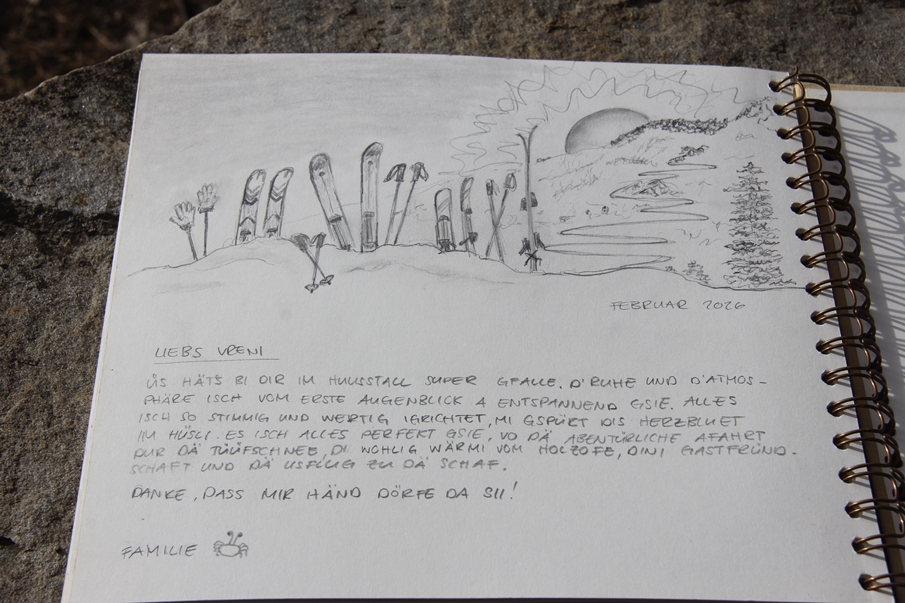 FEBRUAR 2026
LIEBS VRENI
ÜS HÄTS BI DIR IM HUUSSTALL SUPER GFALLE. D'RUHE UND D'ATMOS-
PHÄRE ISCH VOM ERSTE AUGENBLICK A ENTSPANNEND GSIE. ALLES
ISCH SO STIMMIG UND WERTIG IGRICHTET, MI GSPÜRT DIS HERZBLUET
IM HÜSLI. ES ISCH ALLES PERFEKT GSIE, VO DÄ ABENTÜRLICHE AFAHRT
DUR DÄ TÜÜFSCHNEE, DI WOHLIG WÄRMI VOM HOLZOFE, DINI GASTFRÜND-
SCHAFT UND DÄ USFLUG ZU DÄ SCHAF.
DANKE, DASS MIR HÄND DÖRFE DA SII!
FAMILIE